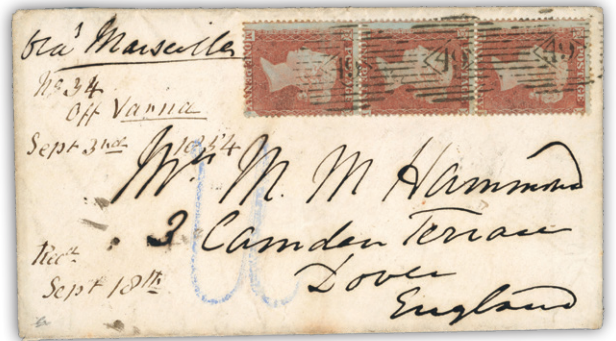 via Marseilles
No 34
Off Varna
Sept 3rd 1854
Mrs M. M Hammond
3 Camden Terrace
Dover
England
Recd
Sept 18th